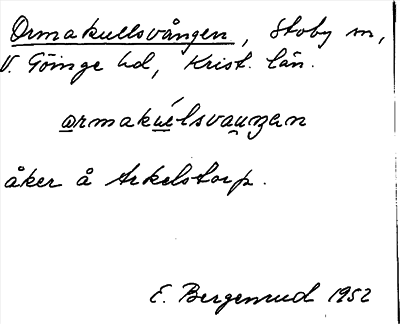 Ormakullsvången, Stoby sn,
V. Göinge hd, Krist. län.
ormakúlsvauŋan
åker å Arkelstorp.
E. Bergenrud 1952